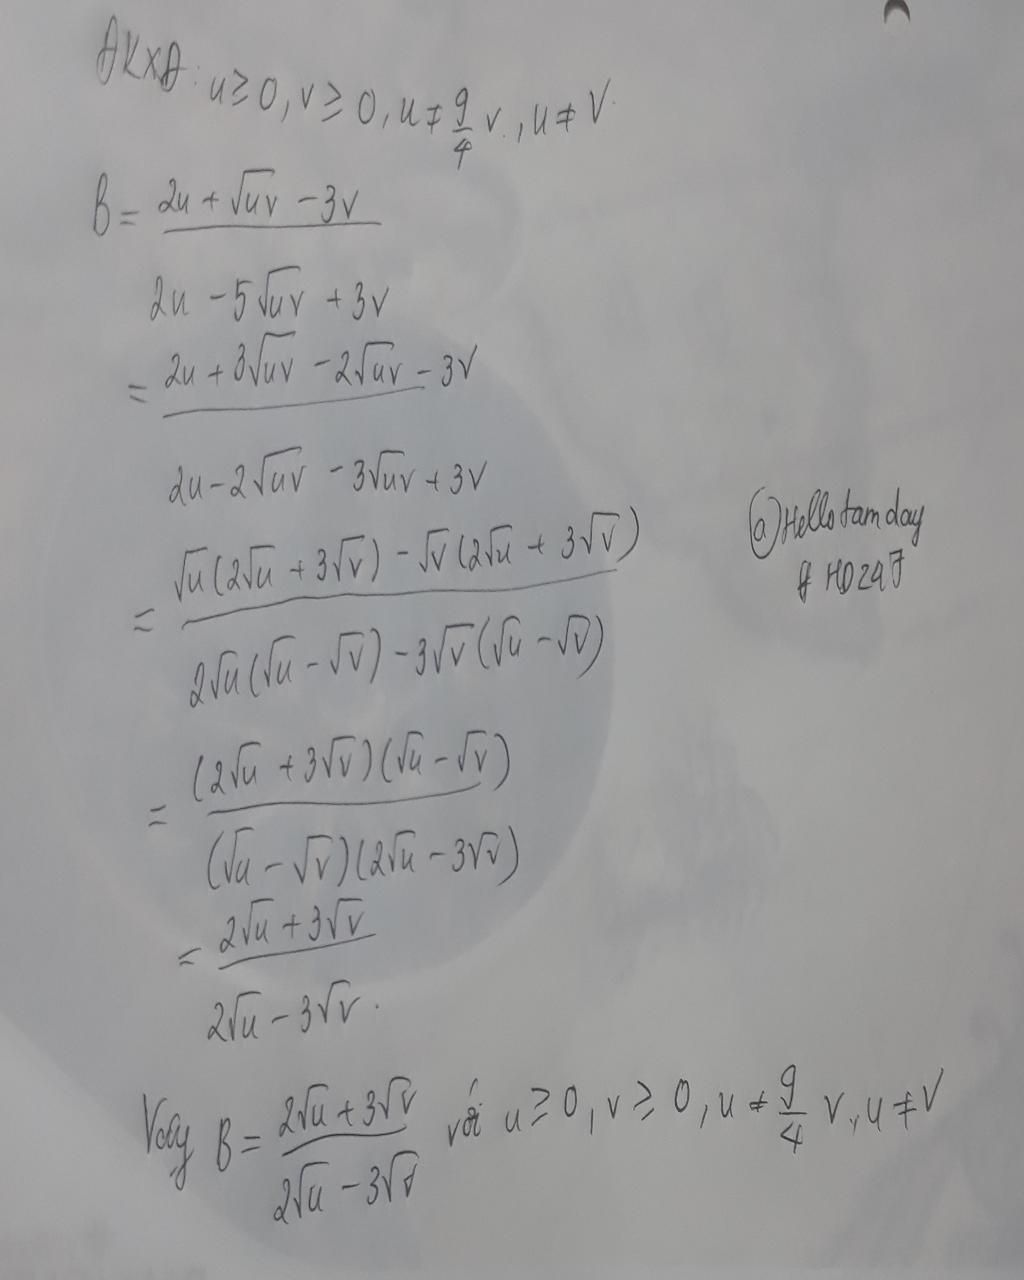 ĐKXĐ: u ≥ 0, v ≥ 0, u ≠ 9/4 v, u ≠ v.
B = (2u + √uv - 3v) / (2u - 5√uv + 3v)
= (2u + 3√uv - 2√uv - 3v) / (2u - 2√uv - 3√uv + 3v)
= (√u(2√u + 3√v) - √v(2√u + 3√v)) / (2√u(√u - √v) - 3√v(√u - √v))
@Hellotamday
# HD247
= ((2√u + 3√v)(√u - √v)) / ((√u - √v)(2√u - 3√v))
= (2√u + 3√v) / (2√u - 3√v).
Vậy B = (2√u + 3√v) / (2√u - 3√v) với u ≥ 0, v ≥ 0, u ≠ 9/4 v, u ≠ v